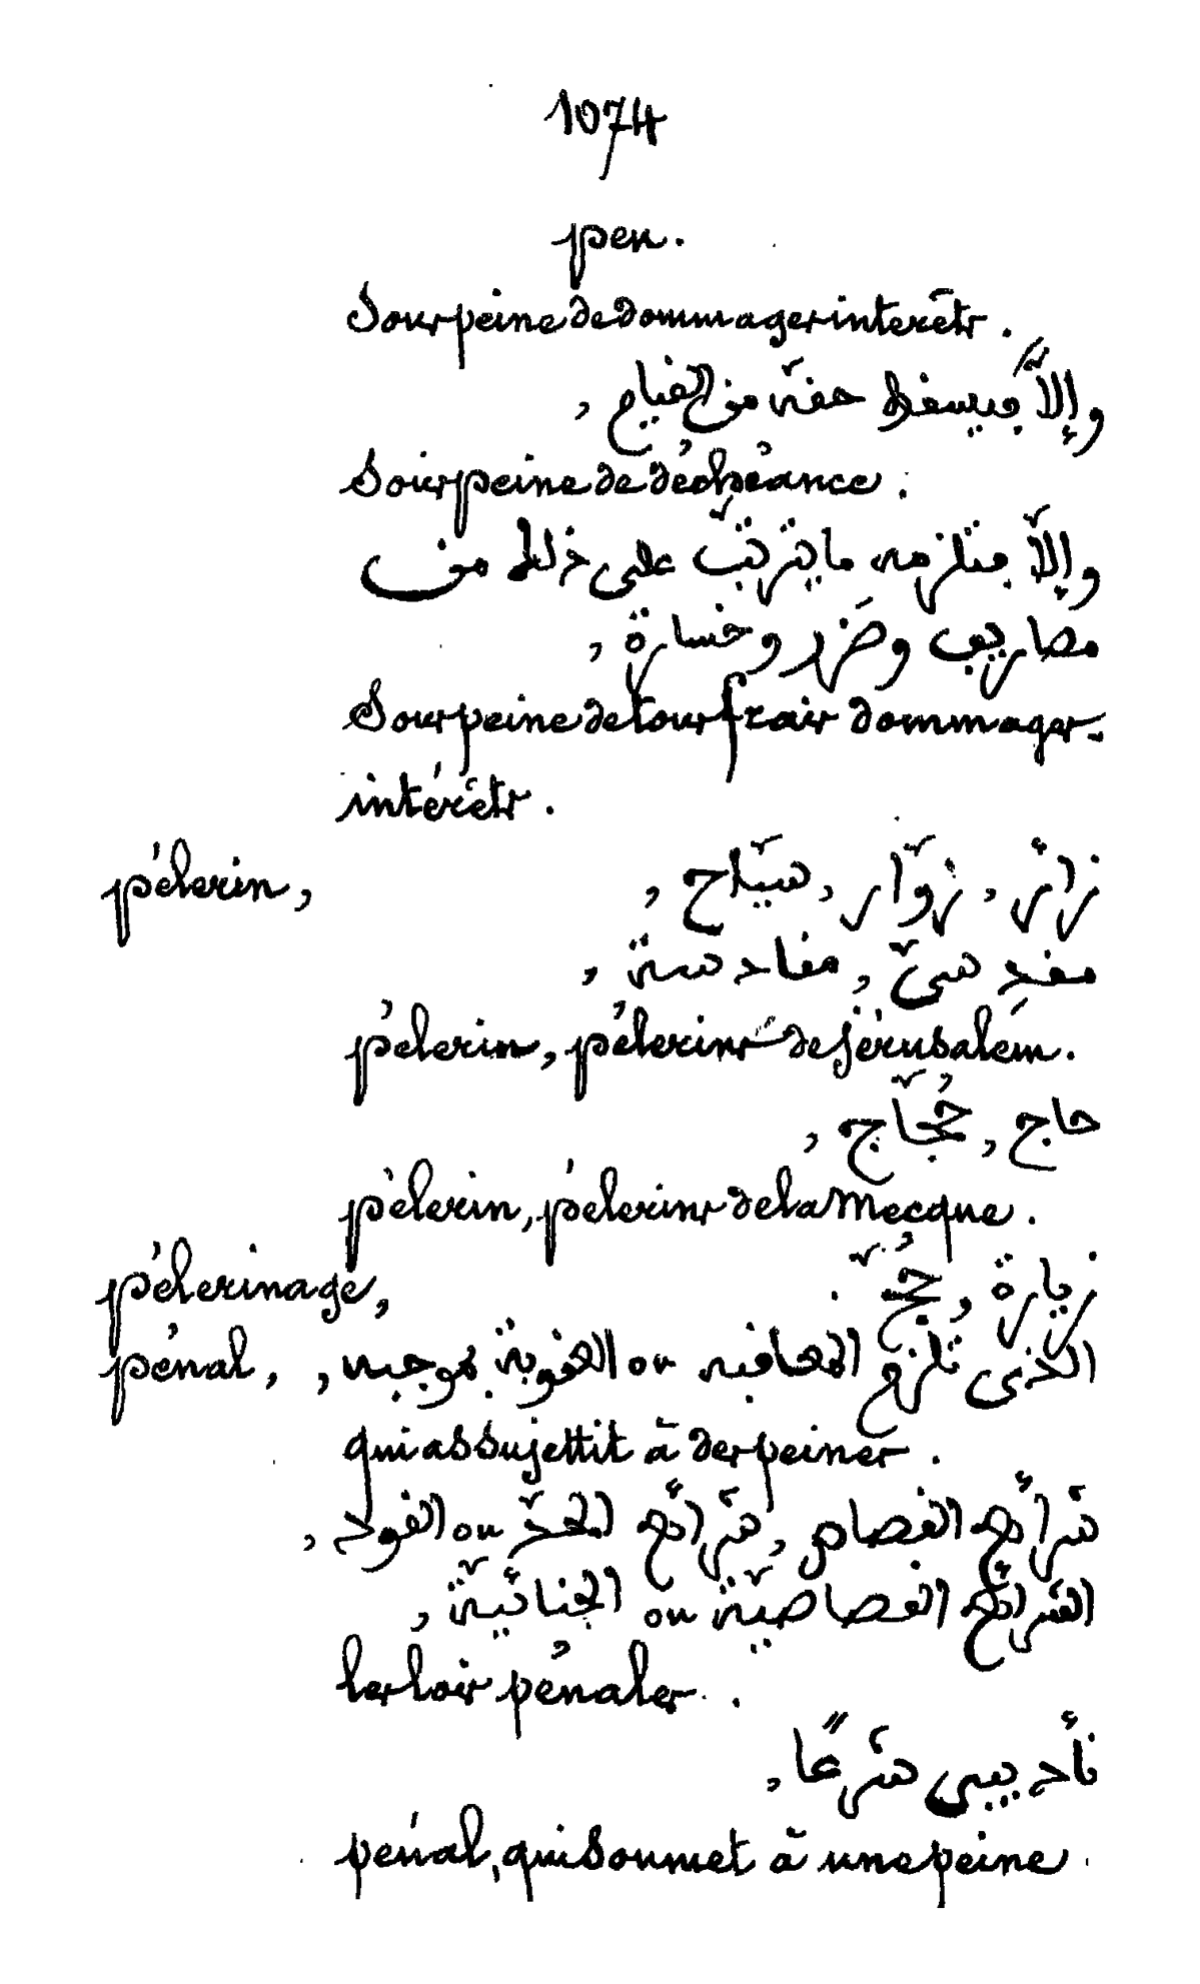 1074
pen.
Sous peine de dommages interêts.
وإلاَّ فيسقط حقّه من القيام ,
Sous peine de déchéance.
وإلاّ فتلزمه ما يترتّب على ذلك من
مصاريف وضَرر وخسارة ,
Sous peine de tous frais dommages-
intérêts.
pélerin, زائر , زوّار , سيّاح ,
مقدِسىّ , مقادسة ,
pélerin, pélerins de Jérusalem.
حاج , حُجّاج ,
pélerin, pélerins de la Mecque.
pélerinage, زيارة , حُجّ .
pénal, الذى تلزم المعاقبه ou العقوبة بموجبه ,
qui assujettit à des peines.
شرائع القصاص , شرائع الحدّ ou القود ,
الشرائع القصاصيّة ou الجنائيّة ,
les lois pénales.
تأديبى شرعًا ,
pénal, qui soumet à une peine.